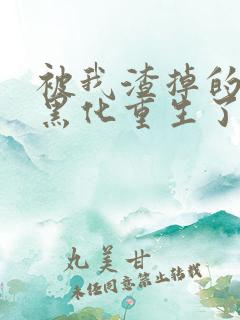 被我渣掉的
黑化重生了
丸美甘
未经同意禁止转载